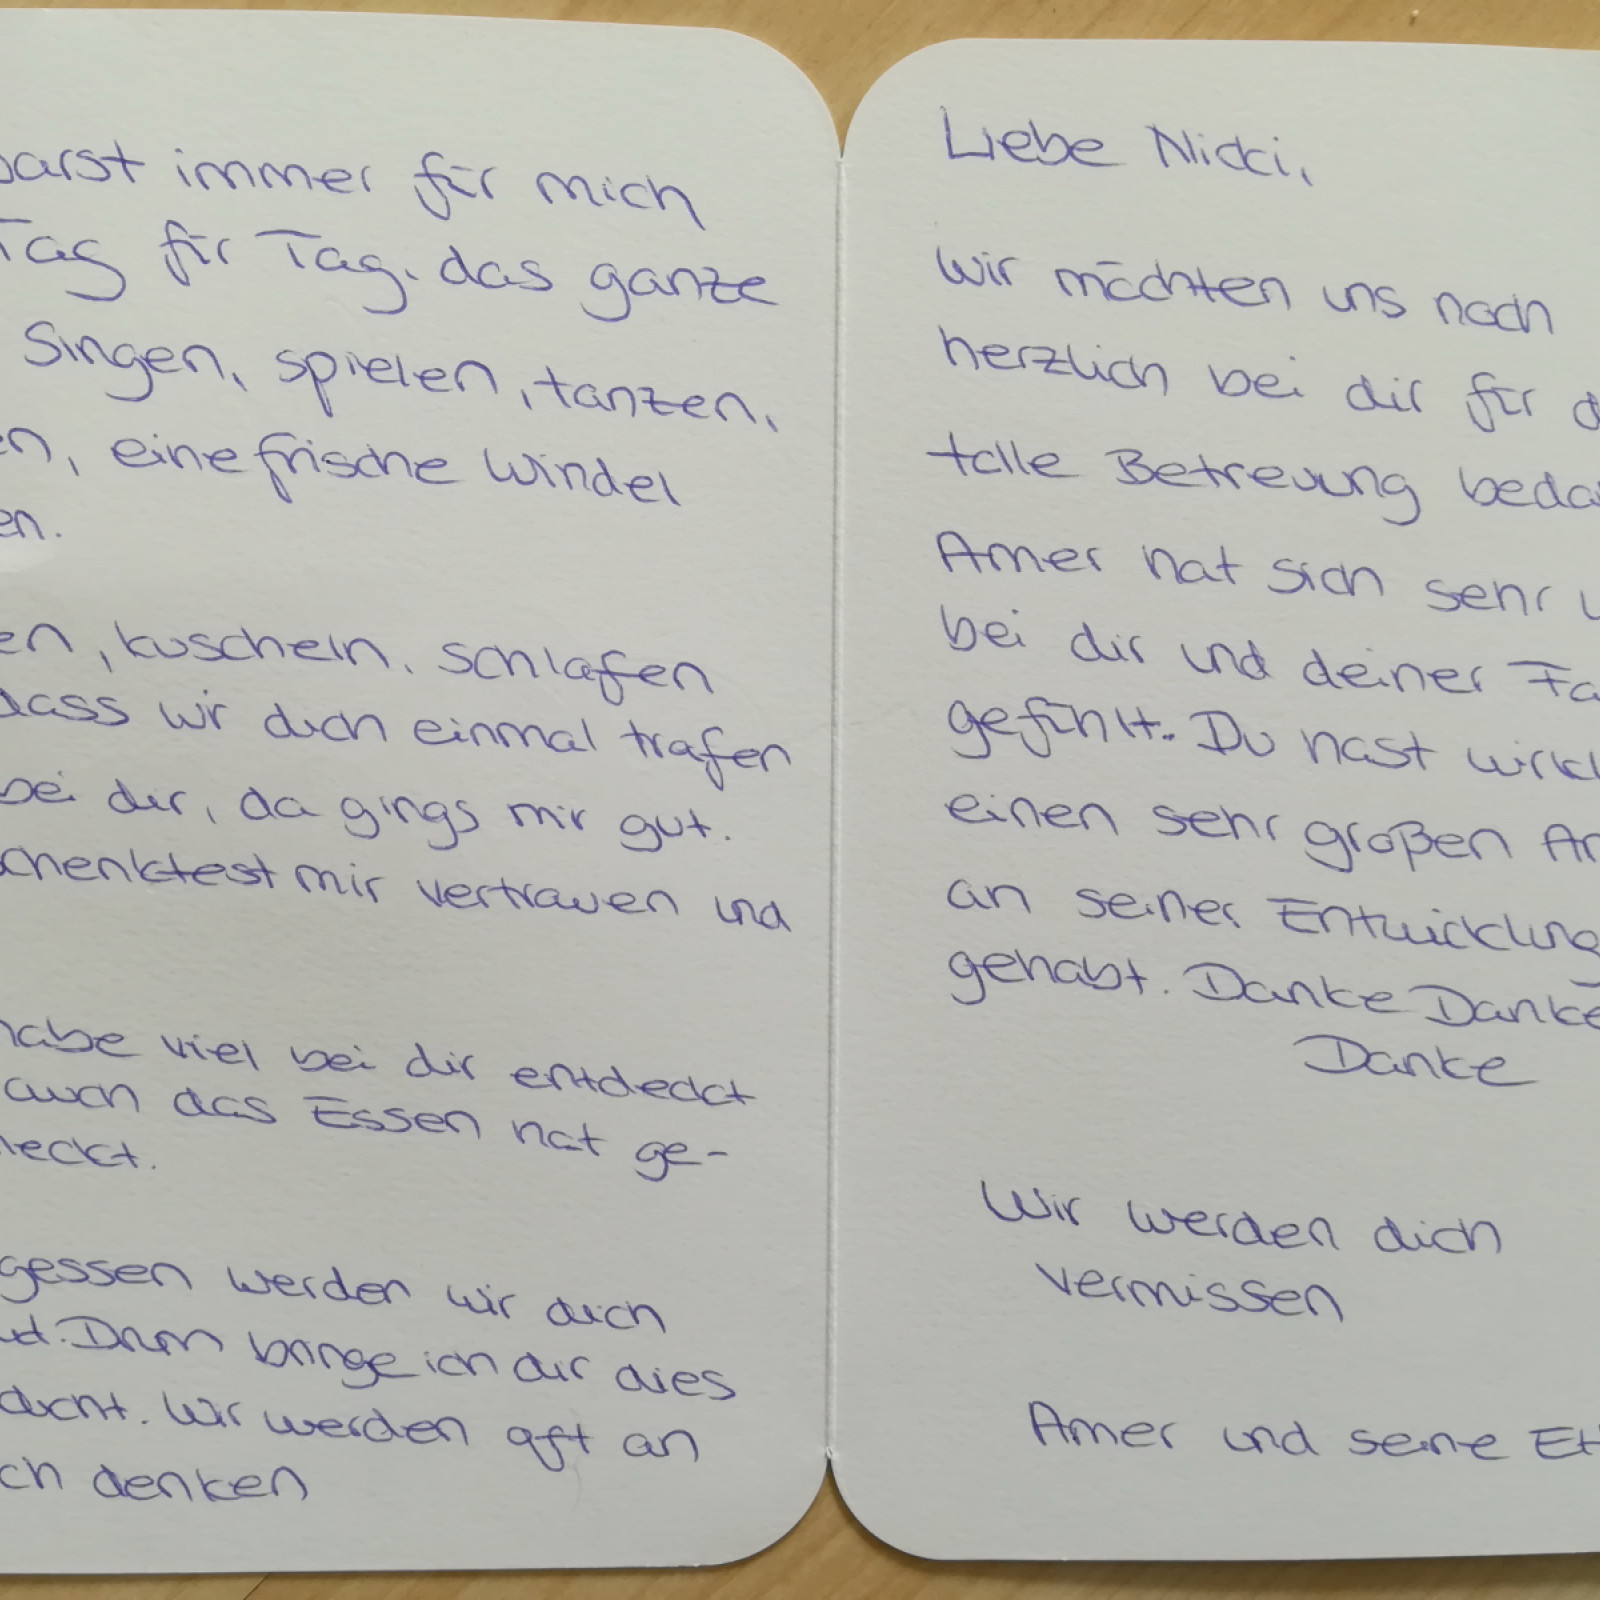 warst immer für mich
Tag für Tag. das ganze
Singen, spielen, tanzen,
en, eine frische Windel
en.
en, kuscheln, schlafen
dass wir dich einmal trafen
bei dir, da gings mir gut.
chenktest mir vertrauen und
habe viel bei dir entdeckt
auch das Essen hat ge-
eckt.
gessen werden wir dich
Drum bringe ich dir dies
dicht. Wir werden oft an
ch denken
Liebe Nicki,
wir möchten uns noch
herzlich bei dir für d
tolle Betreuung beda
Amer hat sich sehr w
bei dir und deiner Fa
gefühlt. Du hast wirkl
einen sehr großen An
an seiner Entwicklung
gehabt. Danke Danke
Danke
Wir werden dich
vermissen
Amer und seine Elt